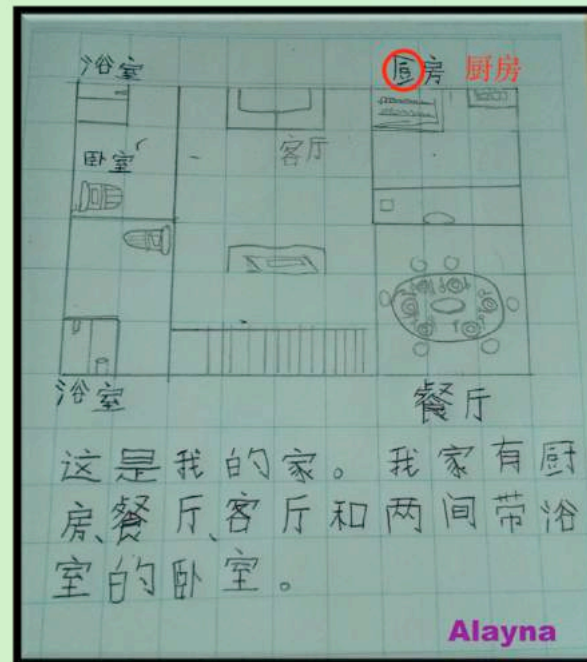 浴室
厨房 厨房
卧室
客厅
浴室
餐厅
这是我的家。我家有厨
房、餐厅、客厅和两间带浴
室的卧室。
Alayna